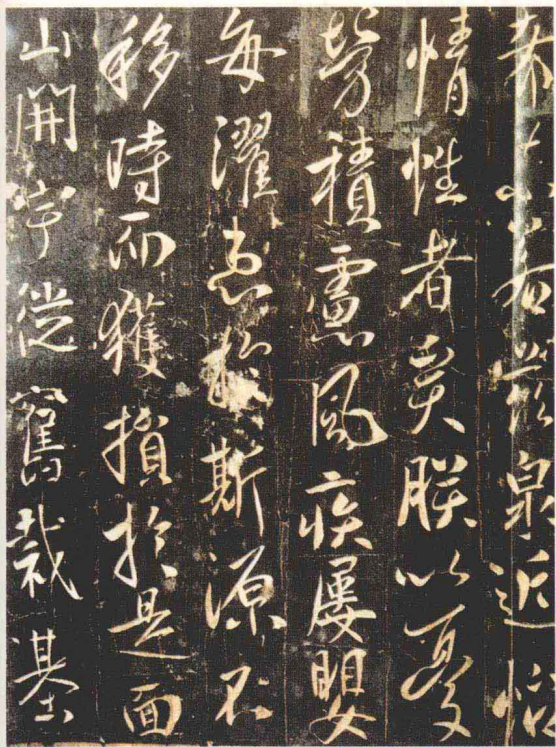 若茲泉近怡
情性者矣朕以憂
勞積慮風疾屢嬰
每濯患於斯源不
移時而獲損於是面
山開宇從舊裁基